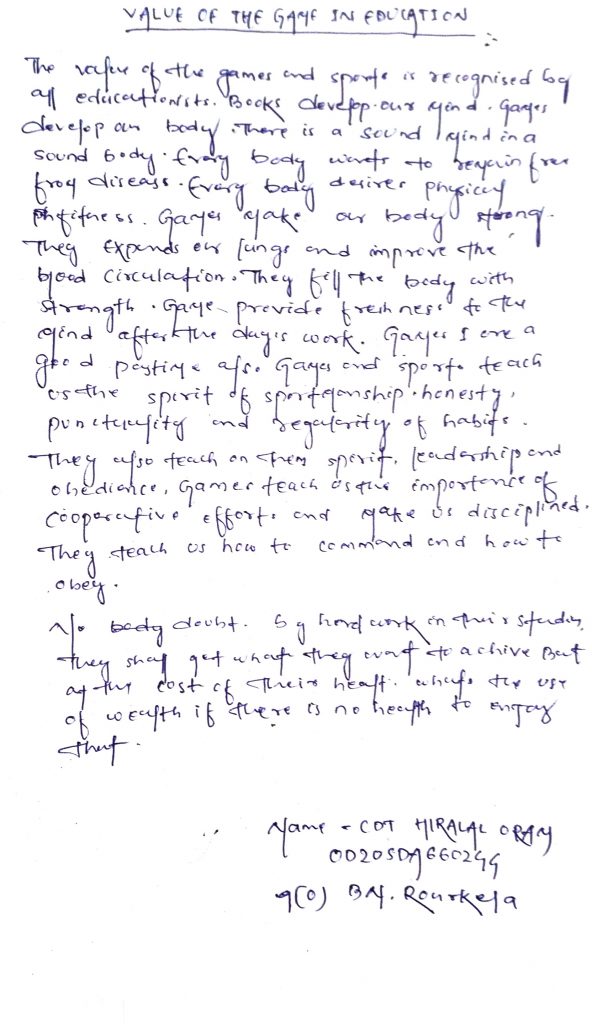 VALUE OF THE GAME IN EDUCATION
The value of the games and sports is recognised by
all educationists. Books develop our mind. Games
develop our body. There is a sound mind in a
sound body. Every body wants to remain free
from disease. Every body desires physical
phfitness. Games make our body strong.
They expands our lungs and improve the
blood circulation. They fill the body with
strength. Game provide freshness to the
mind after the day's work. Games are a
good pastime also. Games and sports teach
us the spirit of sportsmanship. honesty,
punctuality and regularity of habits.
They also teach on spirit, leadership and
obediance, Games teach us the importance of
cooperative efforts and make us disciplined.
They teach us how to command and how to
obey.
No body doubt. by hard work in their studies
they shall get what they want to achive But
at the cost of their healt. whats the use
of wealth if there is no health to enjoy
that.
Name - CDT HIRALAL ORAM
OD20SDA660299
9(O) BN. Rourkela